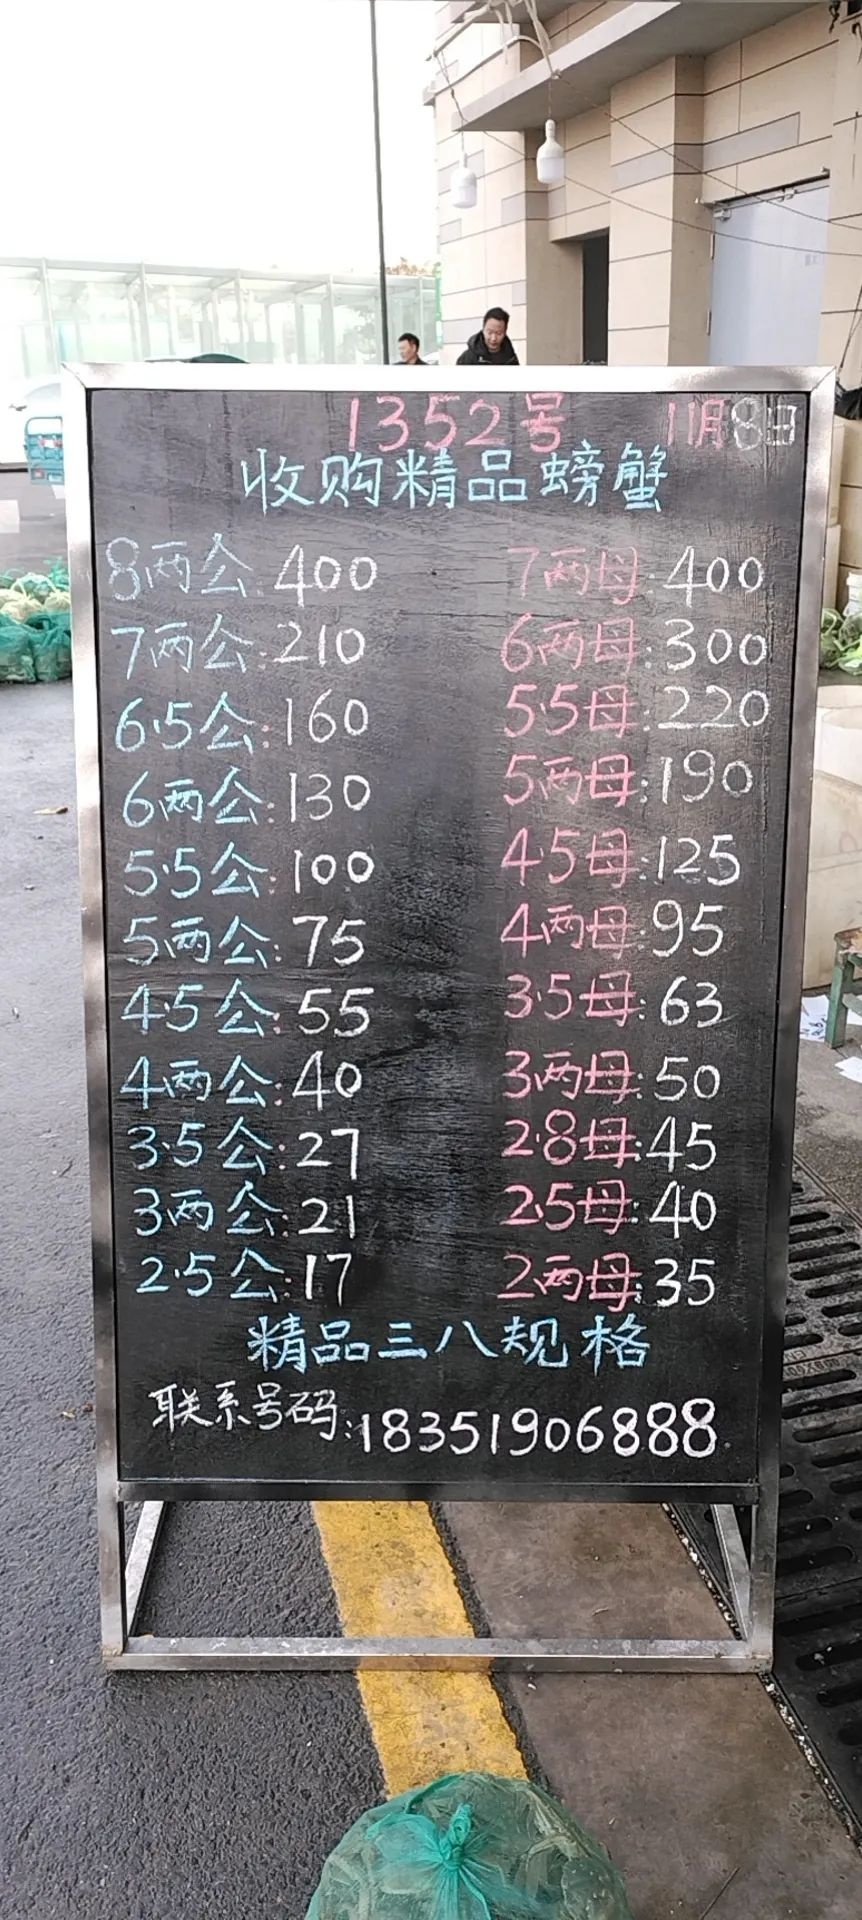 1352号 11月8日
收购精品螃蟹
8两公:400 7两母:400
7两公:210 6两母:300
6.5公:160 5.5母:220
6两公:130 5两母:190
5.5公:100 4.5母:125
5两公:75 4两母:95
4.5公:55 3.5母:63
4两公:40 3两母:50
3.5公:27 2.8母:45
3两公:21 2.5母:40
2.5公:17 2两母:35
精品三八规格
联系号码:18351906888